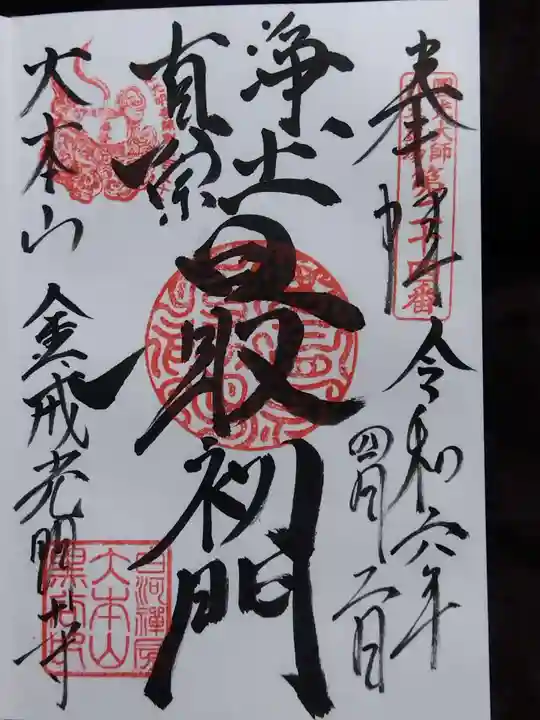 奉拝
令和六年
四月二日
浄土
真宗
最初門
大本山
金戒光明寺
圓光大師
第二十四番
白河禅房
大本山
黒谷